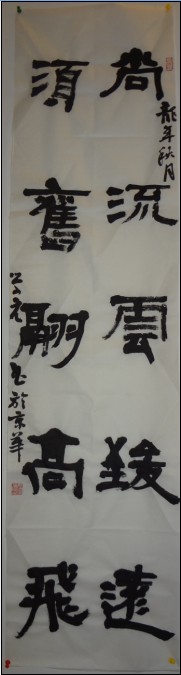 尚流雲致遠
龍年秋月
須奮翮高飛
书於京華